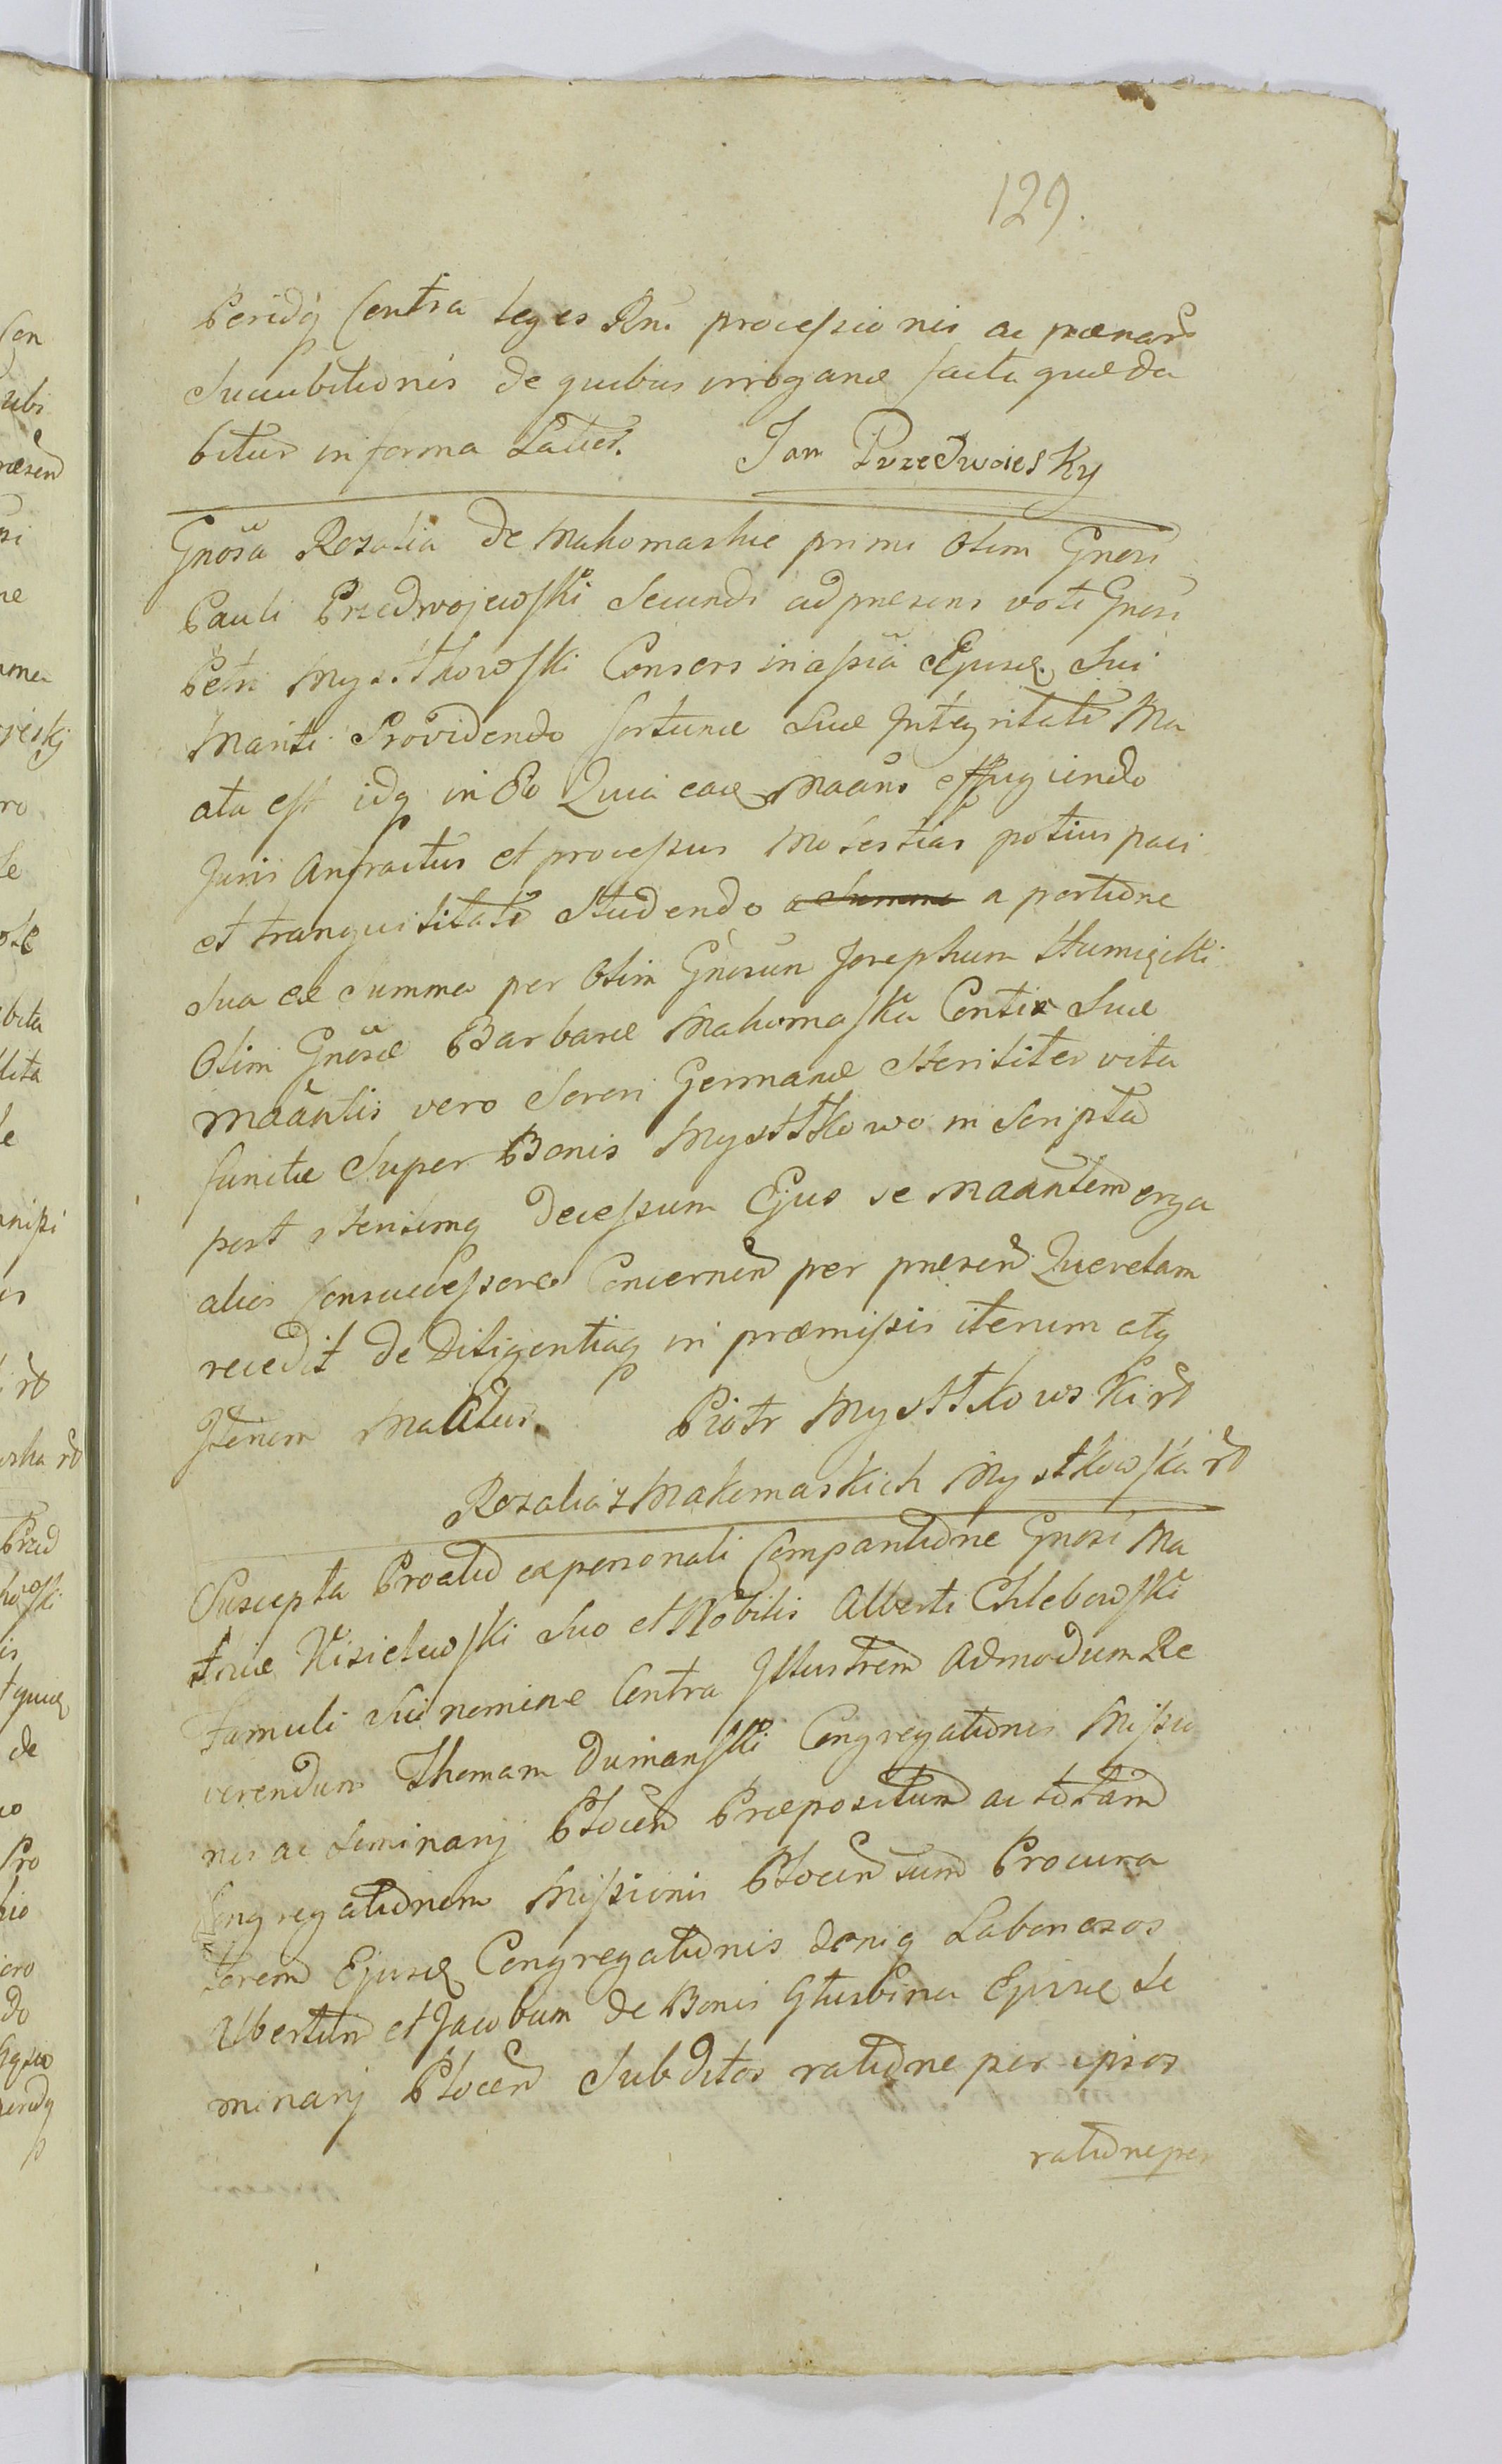 129.
Peridq Contra leges Rni procession̄is ac pœnar̄
Succubitionis de quibus irroganæ facta quæda
bitur in forma Latiēr. Jan Przedwoiesky
Gnosa Rozalia de Makomaskie primi olim Gnosi
Pauli Przedwojewski Secundi ad præsens voti Gnosi
Petri Mysttkowski Consors in assia Ejusd. Sui
Mariti Providendo fortunæ suæ Integritati Ma
ata est idq in Eo Quia ead Maans effugiendo
Juris Anfractus et processus Molestias potius paci
et tranquilitati Studendo a Summa a portione
sua ex summa per Olim Gnosum Josephum
Olim Gnosæ Barbaræ Makomaska Conti Suæ
Maantis vero Sorori Germanæ Steriliter vita
functæ Super Bonis Mysttkowo in Scripta
post sterilemq decessum Ejus se Maantem erga
alios Consuccessores Concernen per præsen Querelam
recedit de Diligentiaq in præmissis iterum atq
Iterum Maatur. Piotr Mysttkowski rō
Rozalia z Makomaskich Mystkowska rō
Suscepta Proatio ex personali Comparitione Gnosi Ma
thiæ Kisielewski Suo et Nobilis Alberti Chlebowski
Famuli sui nomine Contra Illustrem Admodum Re
verendum Thomam Dumanski Congregationis Missio
nis ac Seminarij Plocen Præpositum ac totam
Congregationem Missionis Plocen tum Procura
torem Ejusd Congregationis deniq Laboriosos
Albertum et Jacobum de Bonis Gluzbina Ejusd Se
minarij Plocen Subditos ratione per ipsos
ratione per